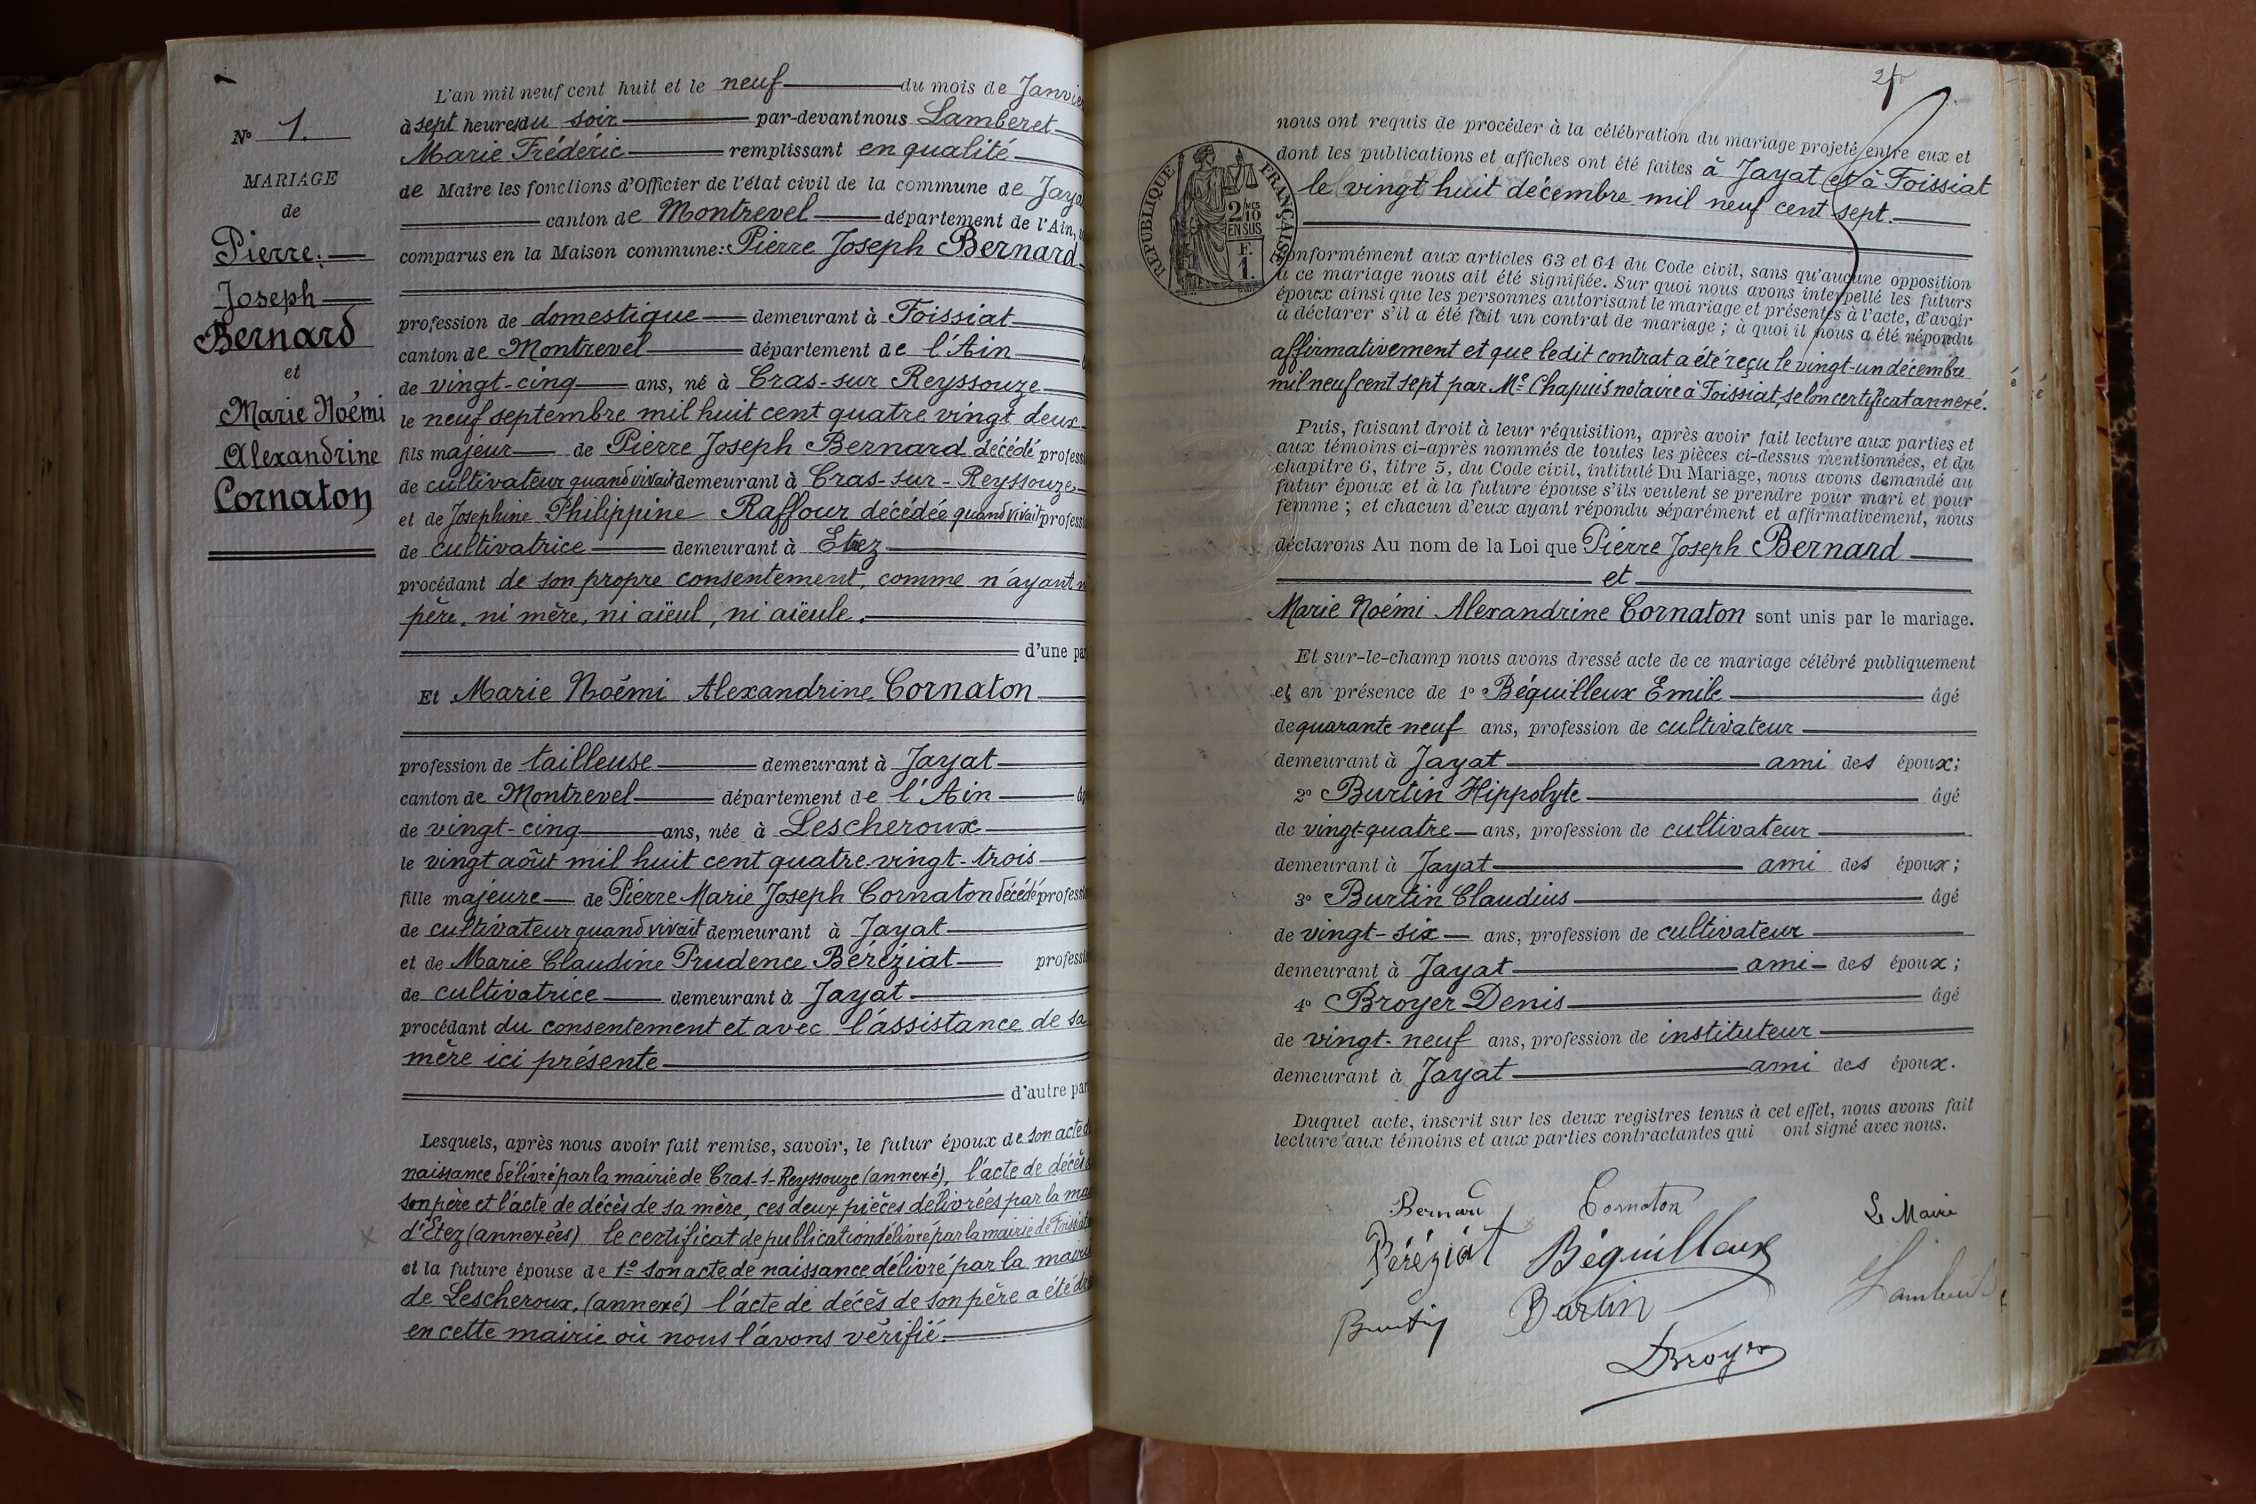 N° 1.
MARIAGE
de
Pierre
Joseph
Bernard
et
Marie Noémi
Alexandrine
Cornaton
L'an mil neuf cent huit et le neuf du mois de Janvier
à sept heures du soir par-devant nous Lamberet
Marie Frédéric remplissant en qualité
de Maire les fonctions d'Officier de l'état civil de la commune de Jaya
canton de Montrevel département de l'Ain,
comparus en la Maison commune: Pierre Joseph Bernard
profession de domestique demeurant à Foissiat
canton de Montrevel département de l'Ain
de vingt-cinq ans, né à Cras-sur Reyssouze
le neuf septembre mil huit cent quatre vingt deux
fils majeur de Pierre Joseph Bernard décédé profess
de cultivateur quand vivait demeurant à Cras-sur-Reyssouze
et de Josephine Philippine Raffour décédée quand vivait profess
de cultivatrice demeurant à Etrez
procédant de son propre consentement, comme n'ayant n
père, ni mère, ni aïeul, ni aïeule.
d'une par
Et Marie Noémi Alexandrine Cornaton
profession de tailleuse demeurant à Jayat
canton de Montrevel département de l'Ain
de vingt-cinq ans, née à Lescheroux
le vingt août mil huit cent quatre-vingt-trois
fille majeure de Pierre Marie Joseph Cornaton décédé profess
de cultivateur quand vivait demeurant à Jayat
et de Marie Claudine Prudence Béréziat profess
de cultivatrice demeurant à Jayat
procédant du consentement et avec l'assistance de sa
mère ici présente
d'autre par
Lesquels, après nous avoir fait remise, savoir, le futur époux de son acte d
naissance délivré par la mairie de Cras-s-Reyssouze (annexé), l'acte de décès
son père et l'acte de décès de sa mère, ces deux pièces délivrées par la mai
d'Etez (annexées) le certificat de publication délivré par la mairie de Foissiat
et la future épouse de 1° son acte de naissance délivré par la mairie
de Lescheroux, (annexé) l'acte de décès de son père a été
en cette mairie où nous l'avons vérifié.
RÉPUBLIQUE FRANÇAISE
2/10
EN SUS
F.
1.
nous ont requis de procéder à la célébration du mariage projeté entre eux et
dont les publications et affiches ont été faites à Jayat et à Foissiat
le vingt huit décembre mil neuf cent sept.
Conformément aux articles 63 et 64 du Code civil, sans qu'aucune opposition
à ce mariage nous ait été signifiée. Sur quoi nous avons interpellé les futurs
époux ainsi que les personnes autorisant le mariage et présentes à l'acte, d'avoir
à déclarer s'il a été fait un contrat de mariage ; à quoi il nous a été répondu
affirmativement et que ledit contrat a été reçu le vingt-un décembre
mil neuf cent sept par Me Chapuis notaire à Foissiat, selon certificat annexé.
Puis, faisant droit à leur réquisition, après avoir fait lecture aux parties et
aux témoins ci-après nommés de toutes les pièces ci-dessus mentionnées, et du
chapitre 6, titre 5, du Code civil, intitulé Du Mariage, nous avons demandé au
futur époux et à la future épouse s'ils veulent se prendre pour mari et pour
femme ; et chacun d'eux ayant répondu séparément et affirmativement, nous
déclarons Au nom de la Loi que Pierre Joseph Bernard
et
Marie Noémi Alexandrine Cornaton sont unis par le mariage.
Et sur-le-champ nous avons dressé acte de ce mariage célébré publiquement
et en présence de 1° Béquilleux Emile âgé
de quarante neuf ans, profession de cultivateur
demeurant à Jayat ami des époux;
2° Burtin Hippolyte âgé
de vingt-quatre ans, profession de cultivateur
demeurant à Jayat ami des époux;
3° Burtin Claudius âgé
de vingt-six ans, profession de cultivateur
demeurant à Jayat ami des époux;
4° Broyer Denis âgé
de vingt-neuf ans, profession de instituteur
demeurant à Jayat ami des époux.
Duquel acte, inscrit sur les deux registres tenus à cet effet, nous avons fait
lecture aux témoins et aux parties contractantes qui ont signé avec nous.
Bernard Cornaton Le Maire
Béréziat Béquilleux Lamberet
Burtin Burtin
DBroyer